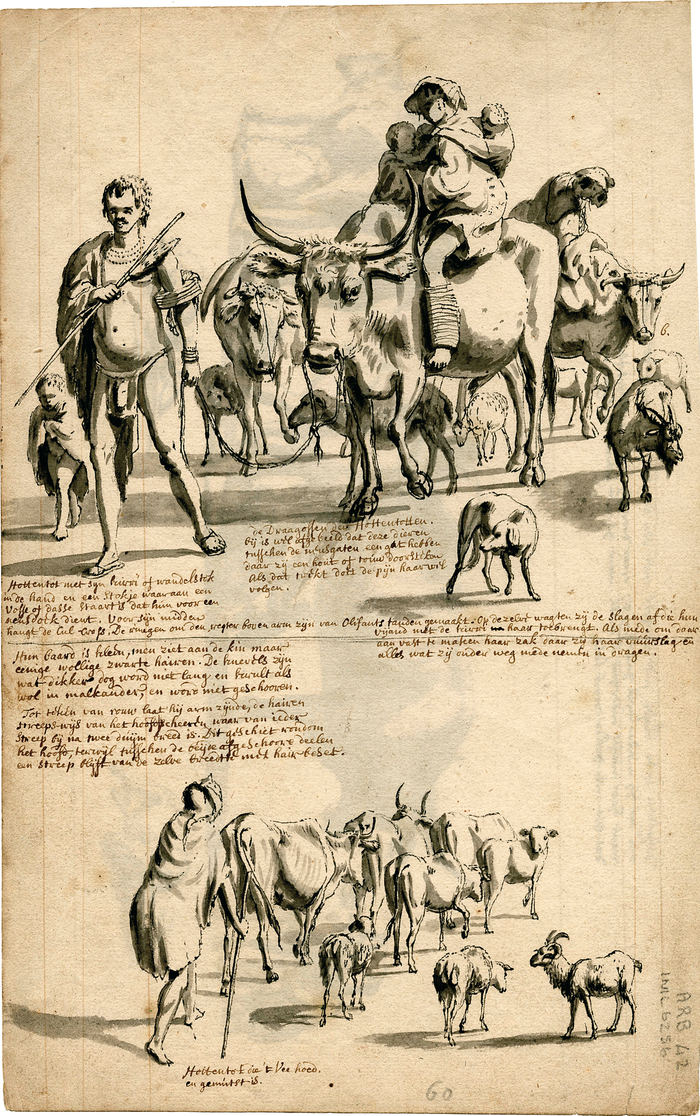 de Draagossen der Hottentotten.
bij is wel afgebeeld dat deze dieren
tusschen de neusgaten een gat hebben
daar zij een hout of touw doorsteken
Als dat trekt doet de pijn haar wel
volgen.
6.
Hottentot met syn kirri of wandelstok
in de hand en een stokje waar aan een
Vosse of dasse staart is dat hem voor een
neusdoek dient. Voor syn midden
hangt de Cul Cross. De ringen om den regter boven arm zijn van Olifants tanden gemaakt. Op dezelve wagten zij de slagen af die hun
vijand met de kirri na haar toebrengt. Als mede om daar
aan vast te maken haar zak daar zij haar vuurslag en
alles wat zij onder weg mede nemen in dragen.
Hun baard is selden, men ziet aan de kin maar
eenige wollige zwarte hairen. De knevels zijn
wat dikker dog word niet lang en krult als
wol in malkander, en word niet geschooren.
Tot teken van rouw laat hij arm zijnde, de hairen
streeps-wijs van het hoofd scheeren waar van ieder
streep bij na twee duijm breed is. Dit geschiet rondom
het hoofd, terwijl tusschen de afgeschoore deelen
een streep blijft van de zelve breedte met hair beset.
Hottentot die 't Vee hoed.
en gemutst is.
60
ARB 42
INIL 6256